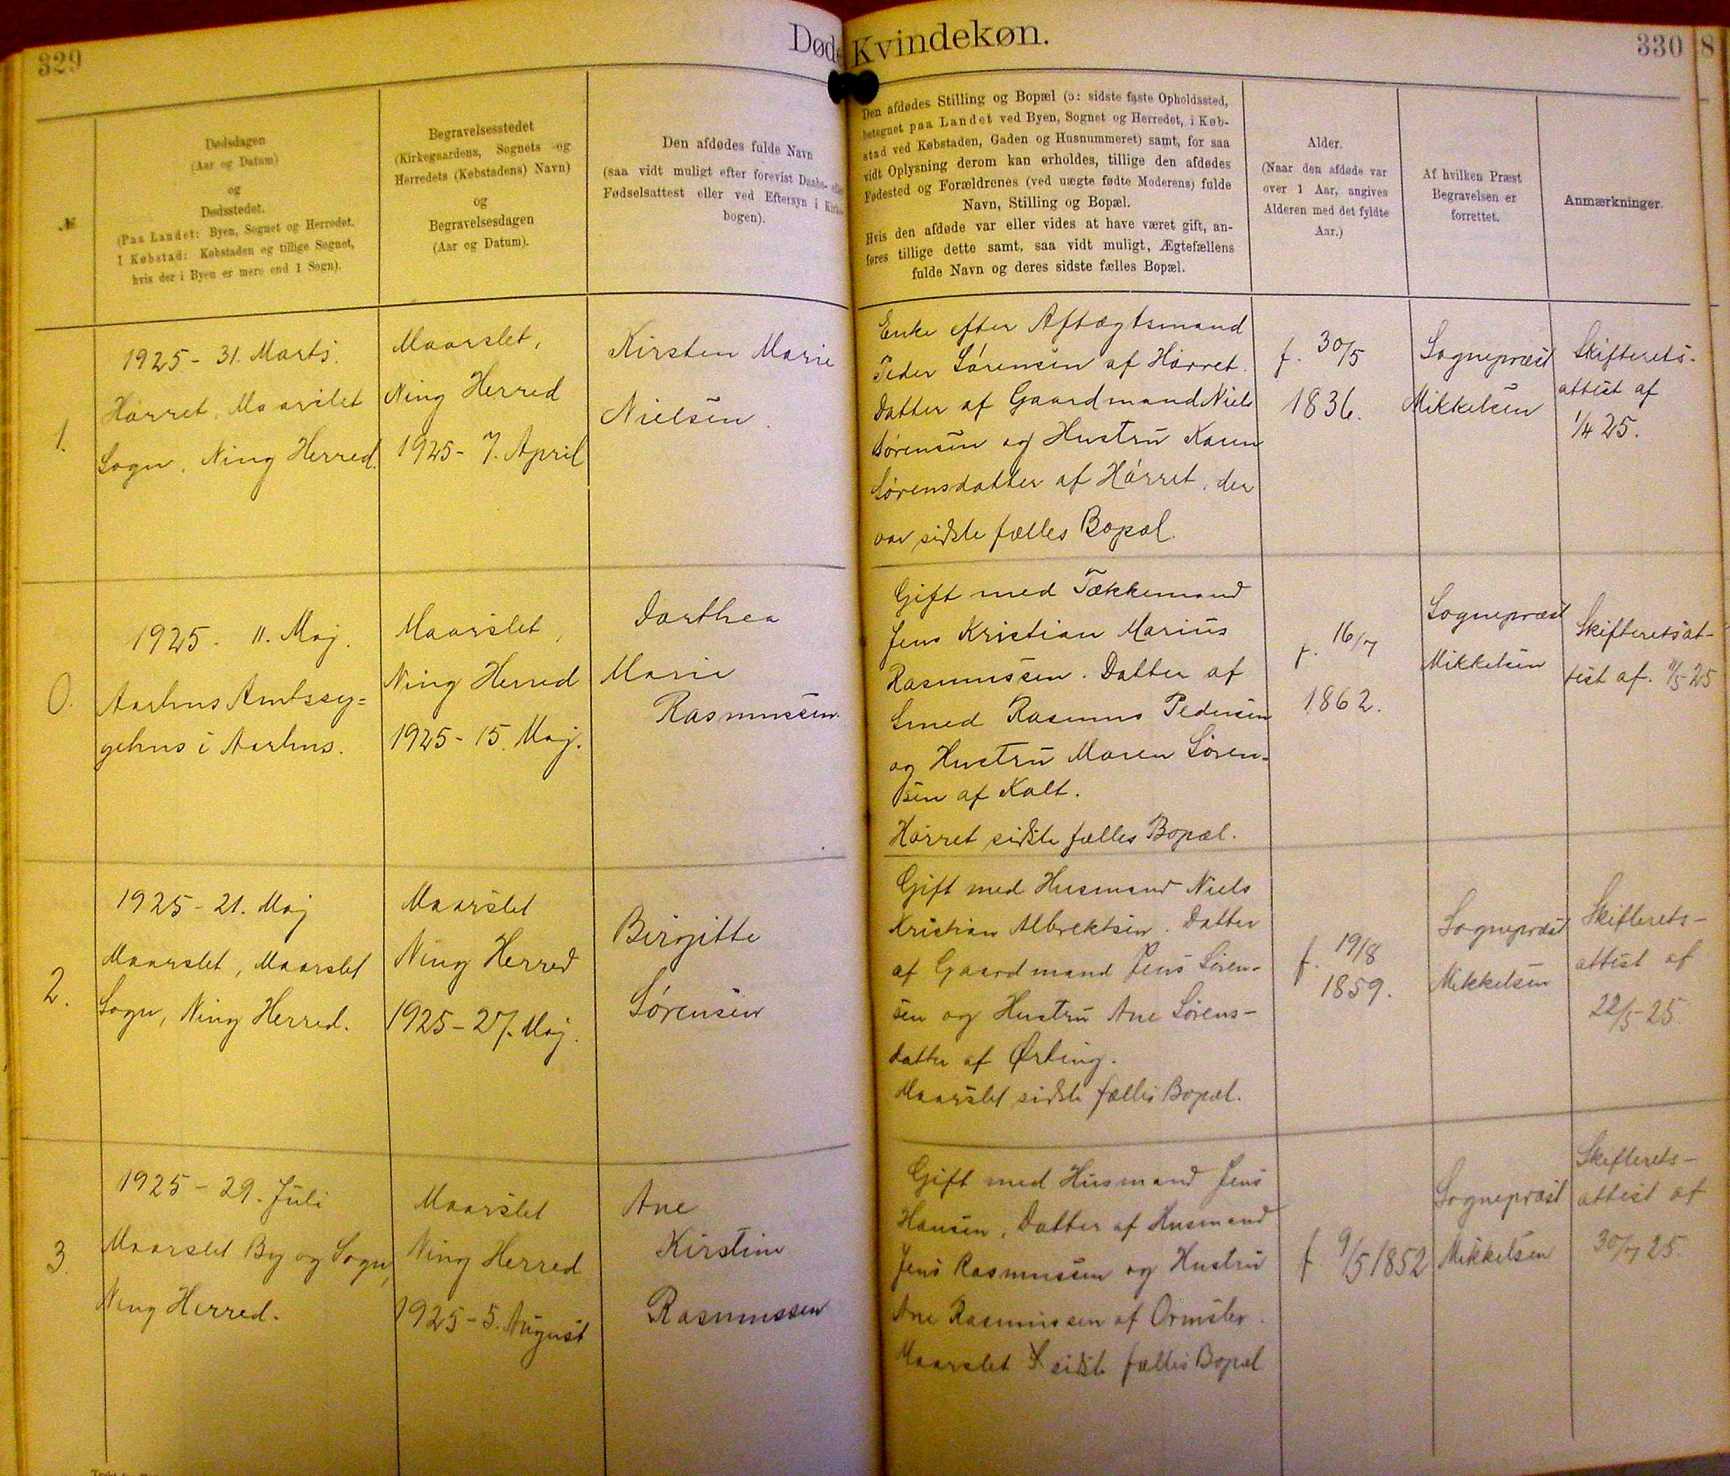 329
Døde Kvindekøn.
330
8
№
Dødsdagen
(Aar og Datum)
og
Dødsstedet.
(Paa Landet: Byen, Sognet og Herredet.
I Købstad: Købstaden og tillige Sognet,
hvis der i Byen er mere end 1 Sogn).
Begravelsesstedet
(Kirkegaardens, Sognets og
Herredets (Købstadens) Navn)
og
Begravelsesdagen
(Aar og Datum).
Den afdødes fulde Navn
(saa vidt muligt efter forevist Daabs- eller
Fødselsattest eller ved Eftersyn i Kirke-
bogen).
Den afdødes Stilling og Bopæl (ɔ: sidste faste Opholdssted,
betegnet paa Landet ved Byen, Sognet og Herredet, i Køb-
stad ved Købstaden, Gaden og Husnummeret) samt, for saa
vidt Oplysning derom kan erholdes, tillige den afdødes
Fødested og Forældrenes (ved uægte fødte Moderens) fulde
Navn, Stilling og Bopæl.
Hvis den afdøde var eller vides at have været gift, an-
føres tillige dette samt, saa vidt muligt, Ægtefællens
fulde Navn og deres sidste fælles Bopæl.
Alder.
(Naar den afdøde var
over 1 Aar, angives
Alderen med det fyldte
Aar.)
Af hvilken Præst
Begravelsen er
forrettet.
Anmærkninger.
1.
1925 - 31. Marts.
Hørret, Maarslet
Sogn, Ning Herred.
Maarslet,
Ning Herred
1925 - 7. April
Kirsten Marie
Nielsen.
Enke efter Aftægtsmand
Peder Sørensen af Hørret.
Datter af Gaardmand Niels
Sørensen og Hustru Karen
Sørensdatter af Hørret, der
var sidste fælles Bopæl.
f. 30/5
1836.
Sognepræst
Mikkelsen
Skifterets-
attest af
1/4 25.
0.
1925 - 11. Maj.
Aarhus Amtssy=
gehus i Aarhus.
Maarslet,
Ning Herred
1925 - 15. Maj.
Dorthea
Marie
Rasmussen.
Gift med Tækkemand
Jens Kristian Marius
Rasmussen. Datter af
Smed Rasmus Pedersen
og Hustru Maren Søren-
sen af Kolt.
Hørret sidste fælles Bopæl.
f. 16/7
1862.
Sognepræst
Mikkelsen
Skifteretsat-
test af. 11/5-25
2.
1925 - 21. Maj
Maarslet, Maarslet
Sogn, Ning Herred.
Maarslet
Ning Herred
1925 - 27. Maj.
Birgitte
Sørensen
Gift med Husmand Niels
Kristian Albrektsen. Datter
af Gaardmand Jens Søren-
sen og Hustru Ane Sørens-
datter af Ørting.
Maarslet sidste fælles Bopæl.
f. 19/8
1859.
Sognepræst
Mikkelsen
Skifterets-
attest af
22/5-25.
3.
1925 - 29. Juli
Maarslet By og Sogn,
Ning Herred.
Maarslet
Ning Herred
1925 - 5. August
Ane
Kirstine
Rasmussen
Gift med Husmand Jens
Hansen, Datter af Husmand
Jens Rasmussen og Hustru
Ane Rasmussen af Ormslev.
Maarslet sidste fælles Bopæl
f. 9/5 1852
Sognepræst
Mikkelsen
Skifterets-
attest af
30/7 25.